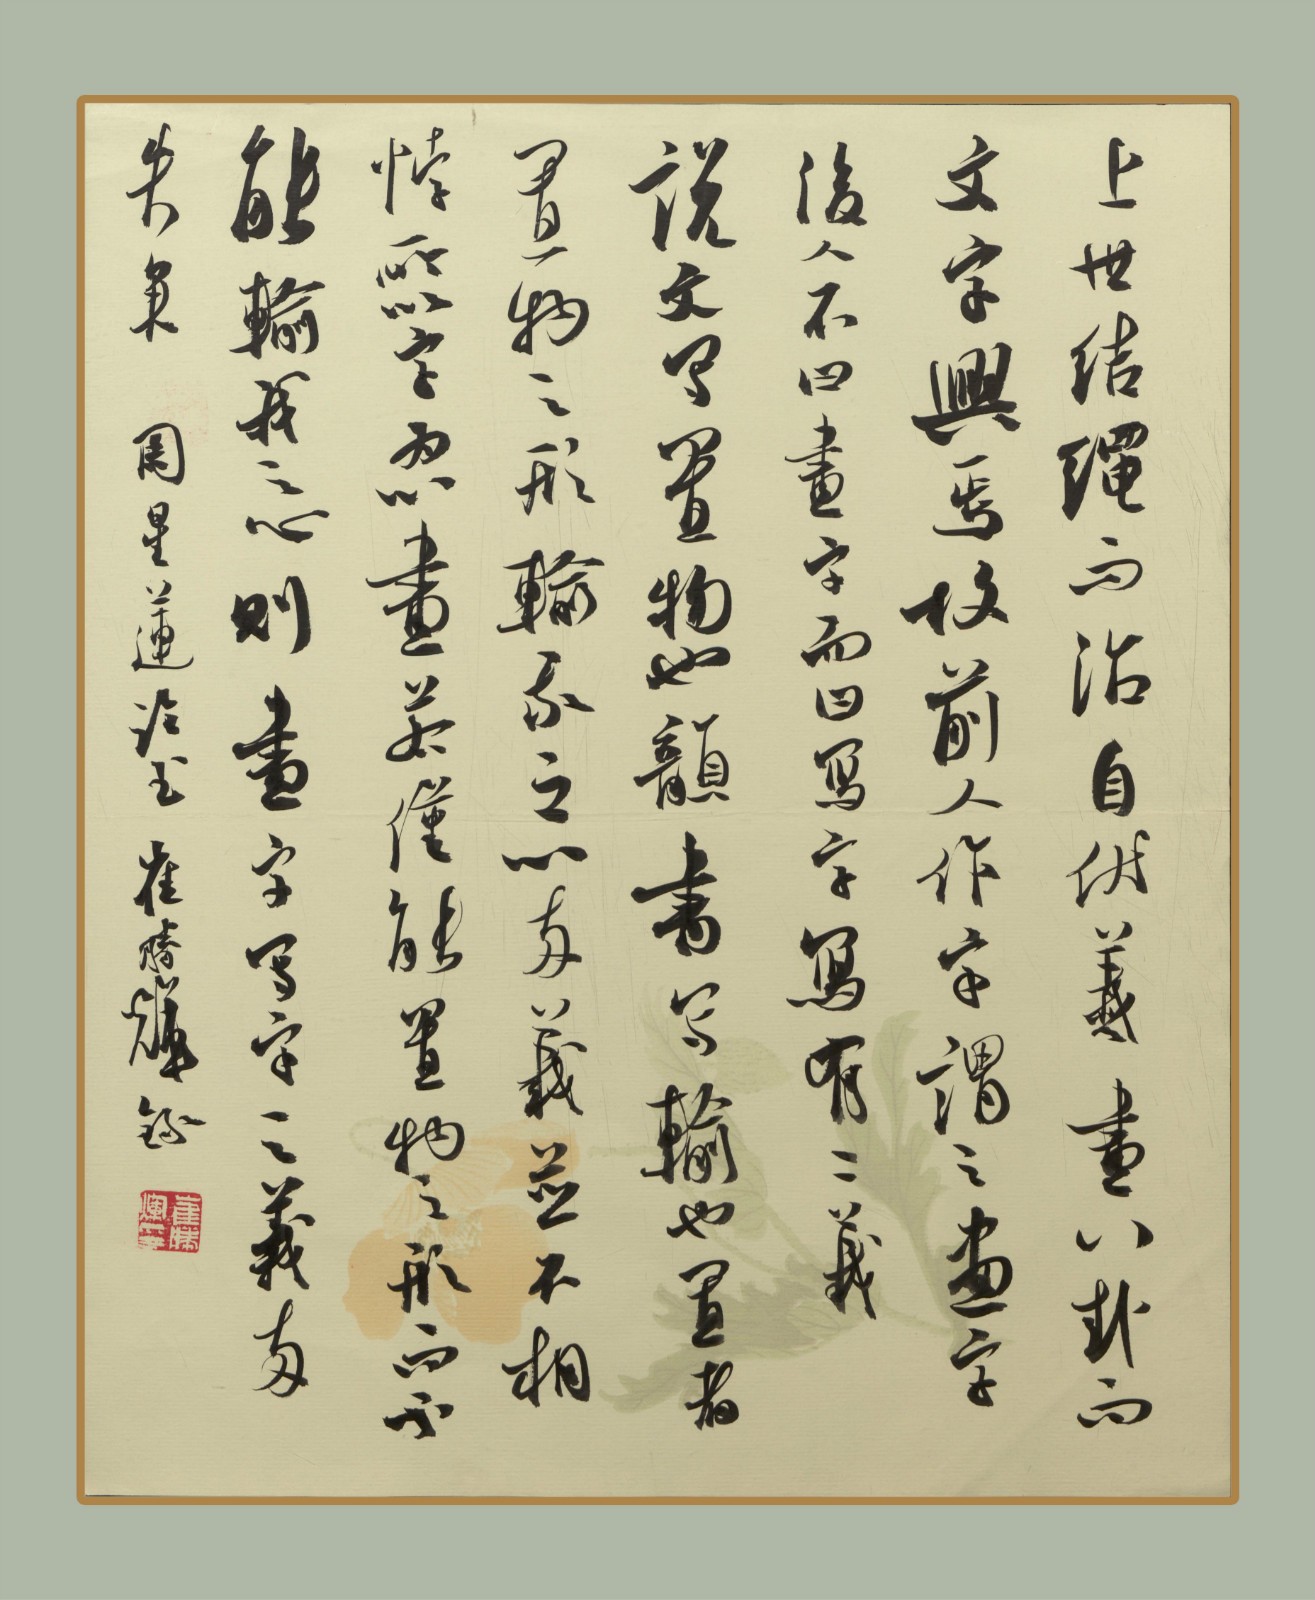 上世結繩而治自伏羲畫八卦而
文字興焉故前人作字謂之畫字
後人不曰畫字而曰寫字寫有二義
説文写置物也韻書写輸也置者
置物之形輸我之心兩義並不相
悖所以字為心畫若僅能置物之形而不
能輸我之心則畫字写字之義兩
失矣 周星蓮論書 崔勝 錄